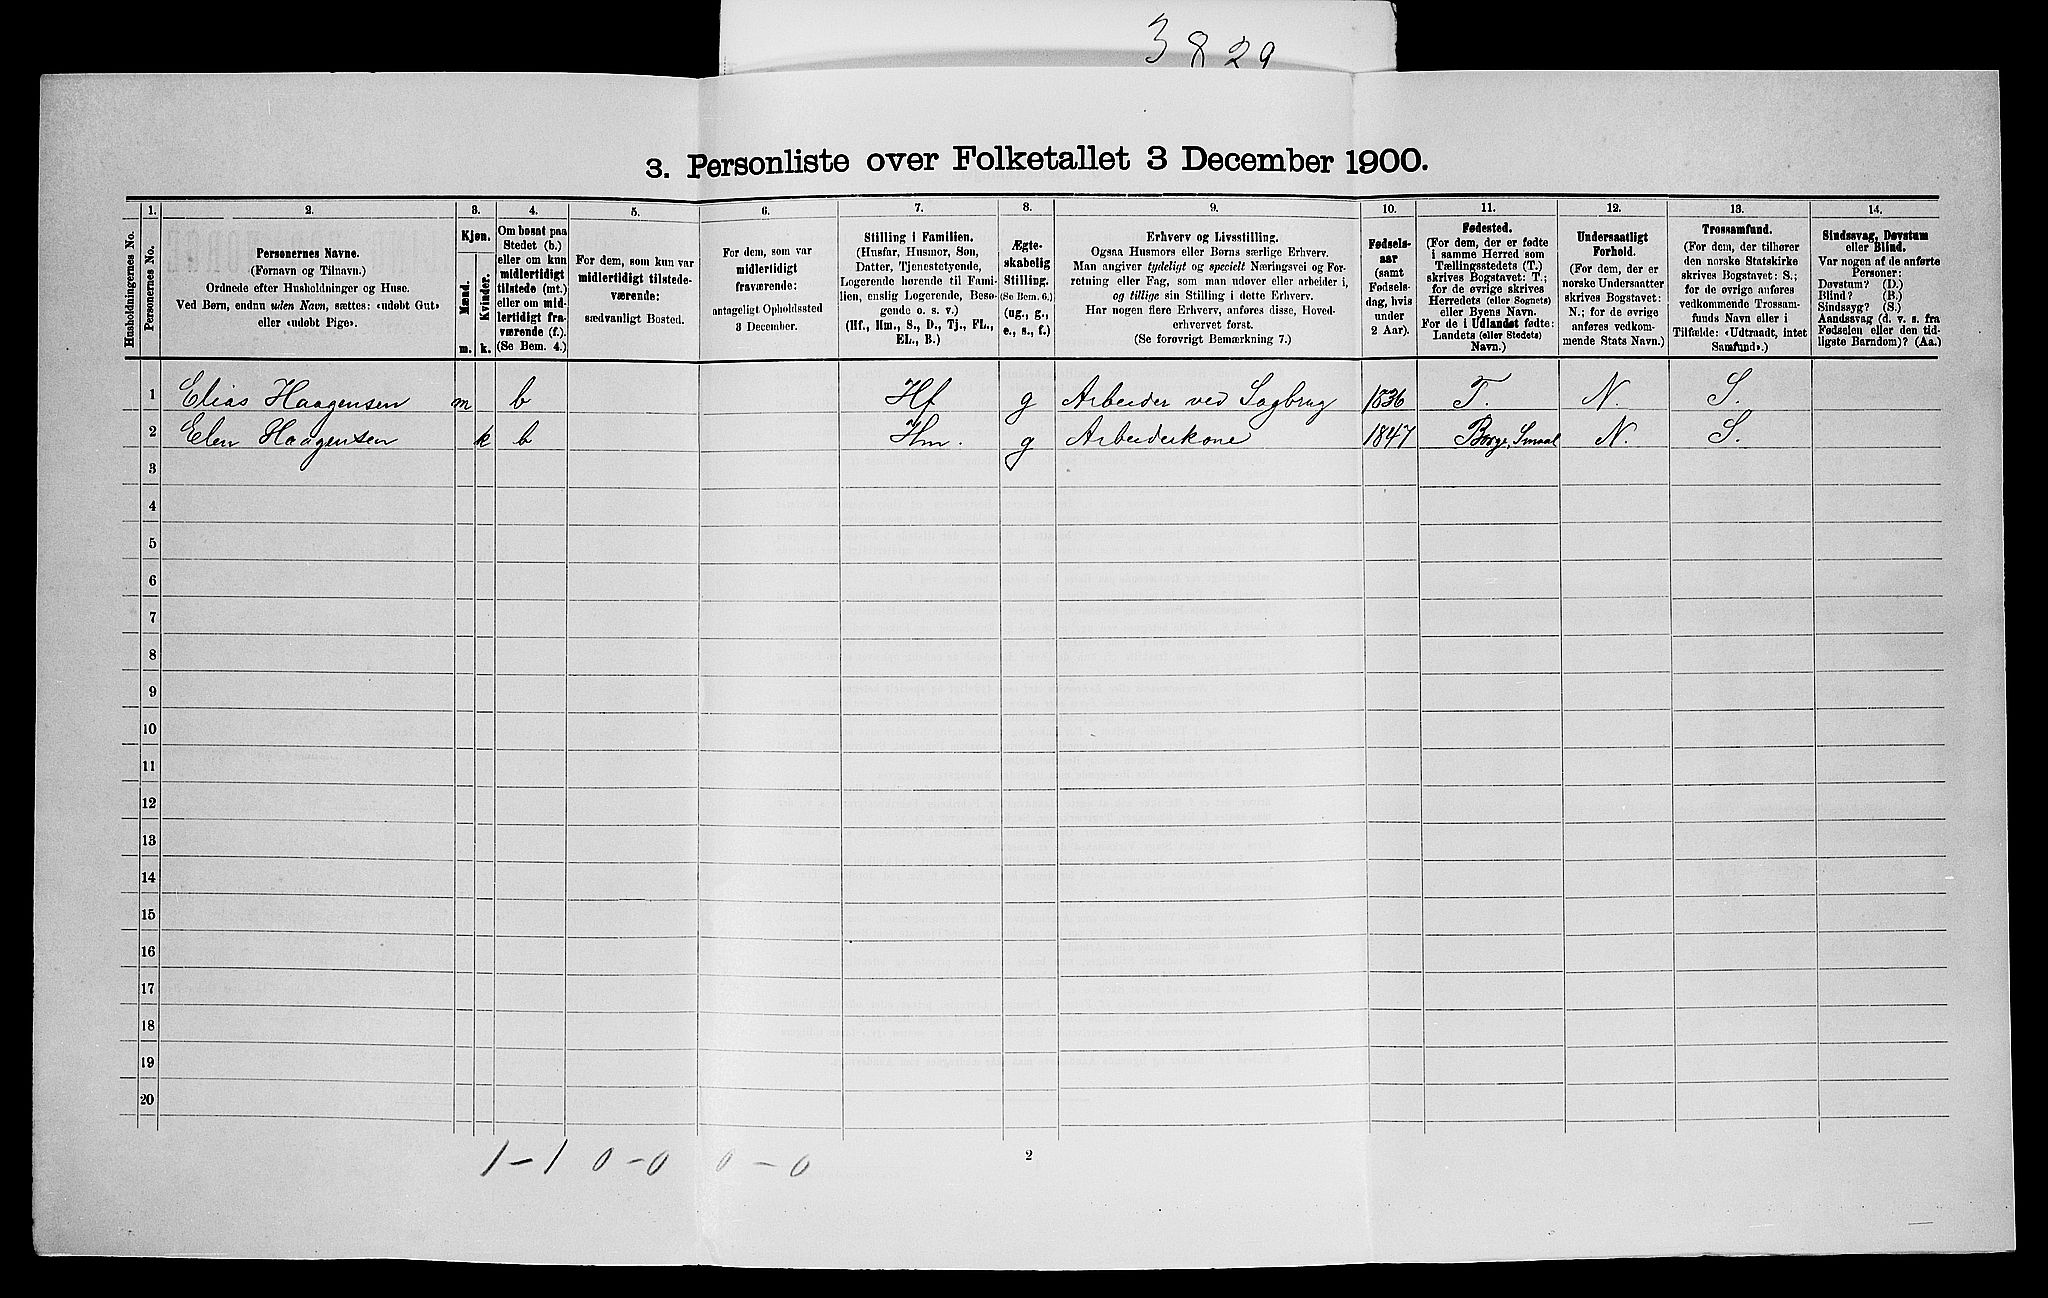 3829
3. Personliste over Folketallet 3 December 1900.
1. 2. 3. 4. 5. 6. 7. 8. 9. 10. 11. 12. 13. 14.
Husholdningernes No.
Personernes No.
Personernes Navne.
(Fornavn og Tilnavn.)
Ordnede efter Husholdninger og Huse.
Ved Børn, endnu uden Navn, sættes: «udøbt Gut»
eller «udøbt Pige».
Kjøn.
Mænd.
Kvinder.
m. k.
Om bosat paa
Stedet (b.)
eller om kun
midlertidigt
tilstede (mt.)
eller om mid-
lertidigt fra-
værende (f.)
(Se Bem. 4.)
For dem, som kun var
midlertidigt tilstede-
værende:
sædvanligt Bosted.
For dem, som var
midlertidigt
fraværende:
antageligt Opholdssted
3 December.
Stilling i Familien.
(Husfar, Husmor, Søn,
Datter, Tjenestetyende,
Logerende hørende til Fami-
lien, enslig Logerende, Besø-
gende o. s. v.)
(Hf., Hm., S., D., Tj., FL.,
EL., B.)
Ægte-
skabelig
Stilling.
(Se Bem. 6.)
(ug., g.,
e., s., f.)
Erhverv og Livsstilling.
Ogsaa Husmors eller Børns særlige Erhverv.
Man angiver tydeligt og specielt Næringsvei og For-
retning eller Fag, som man udøver eller arbeider i,
og tillige sin Stilling i dette Erhverv.
Har nogen flere Erhverv, anføres disse, Hoved-
erhvervet først.
(Se forøvrigt Bemærkning 7.)
Fødsels-
aar
(samt
Fødsels-
dag, hvis
under
2 Aar).
Fødested.
(For dem, der er fødte
i samme Herred som
Tællingsstedets (T.)
skrives Bogstavet: T.;
for de øvrige skrives
Herredets (eller Sognets)
eller Byens Navn.
For de i Udlandet fødte:
Landets (eller Stedets)
Navn.)
Undersaatligt
Forhold.
(For dem, der er
norske Undersaatter
skrives Bogstavet:
N.; for de øvrige
anføres vedkom-
mende Stats Navn.)
Trossamfund.
(For dem, der tilhører
den norske Statskirke
skrives Bogstavet: S.;
for de øvrige anføres
vedkommende Trossam-
funds Navn eller i
Tilfælde: «Udtraadt, intet
Samfund».)
Sindssvag, Døvstum
eller Blind.
Var nogen af de anførte
Personer:
Døvstum? (D.)
Blind? (B.)
Sindssyg? (S.)
Aandssvag (d. v. s. fra
Fødselen eller den tid-
ligste Barndom)? (Aa.)
1 Elias Haagensen m b Hf g Arbeider ved Sagbrug 1836 T. N. S.
2 Elen Haagensen k b Hm. g Arbeiderkone 1847 Borge, Smaal N. S.
3
4
5
6
7
8
9
10
11
12
13
14
15
16
17
18
19
20
1-1 0-0 0-0
2